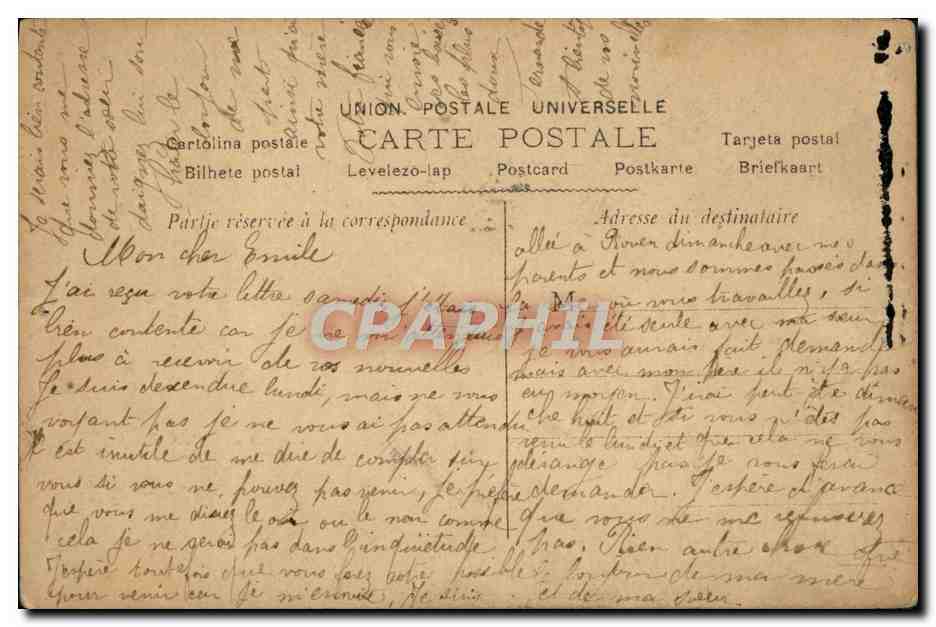 UNION POSTALE UNIVERSELLE
CARTE POSTALE
Cartolina postale
Tarjeta postal
Bilhete postal
Levelezö-lap
Postcard
Postkarte
Briefkaart
Partie réservée à la correspondance
Adresse du destinataire
Mon cher Emile
J'ai reçu votre lettre samedi,
bien contente car je ne
plus à recevoir de vos nouvelles
Je suis descendue lundi, mais ne vous
voyant pas je ne vous ai pas attendu
est inutile de me dire de compter sur
vous si vous ne pouvez pas venir, je préfère
que vous me disiez le oui ou le non comme
cela je ne serai pas dans l'inquiétude
J'espère toutefois que vous ferez votre possible
pour venir car je m'ennuie, Je
allée à Rouen dimanche avec mes
parents et nous sommes passés dans
la M où vous travaillez, si
été seule avec ma sœur
je vous aurais fait demandé
mais avec mon père il n'y a pas
eu moyen. J'irai peut être diman
che huit et si vous n'êtes pas
venu le lundi et que cela ne vous
dérange pas je vous ferai
demander. J'espère d'avance
que vous ne me refuserez
pas. Rien autre chose
le bonjour de ma mère
et de ma sœur.
Je serais bien contente
que vous me
donniez l'adresse
de votre sœur
daignez lui
le
bonjour
de me
part
ainsi qu'a
votre mère
Votre
qui vous
envoie
ses baisers
les plus
doux
Fernande
A bientôt
de vos
nouvelles
CPAPHIL